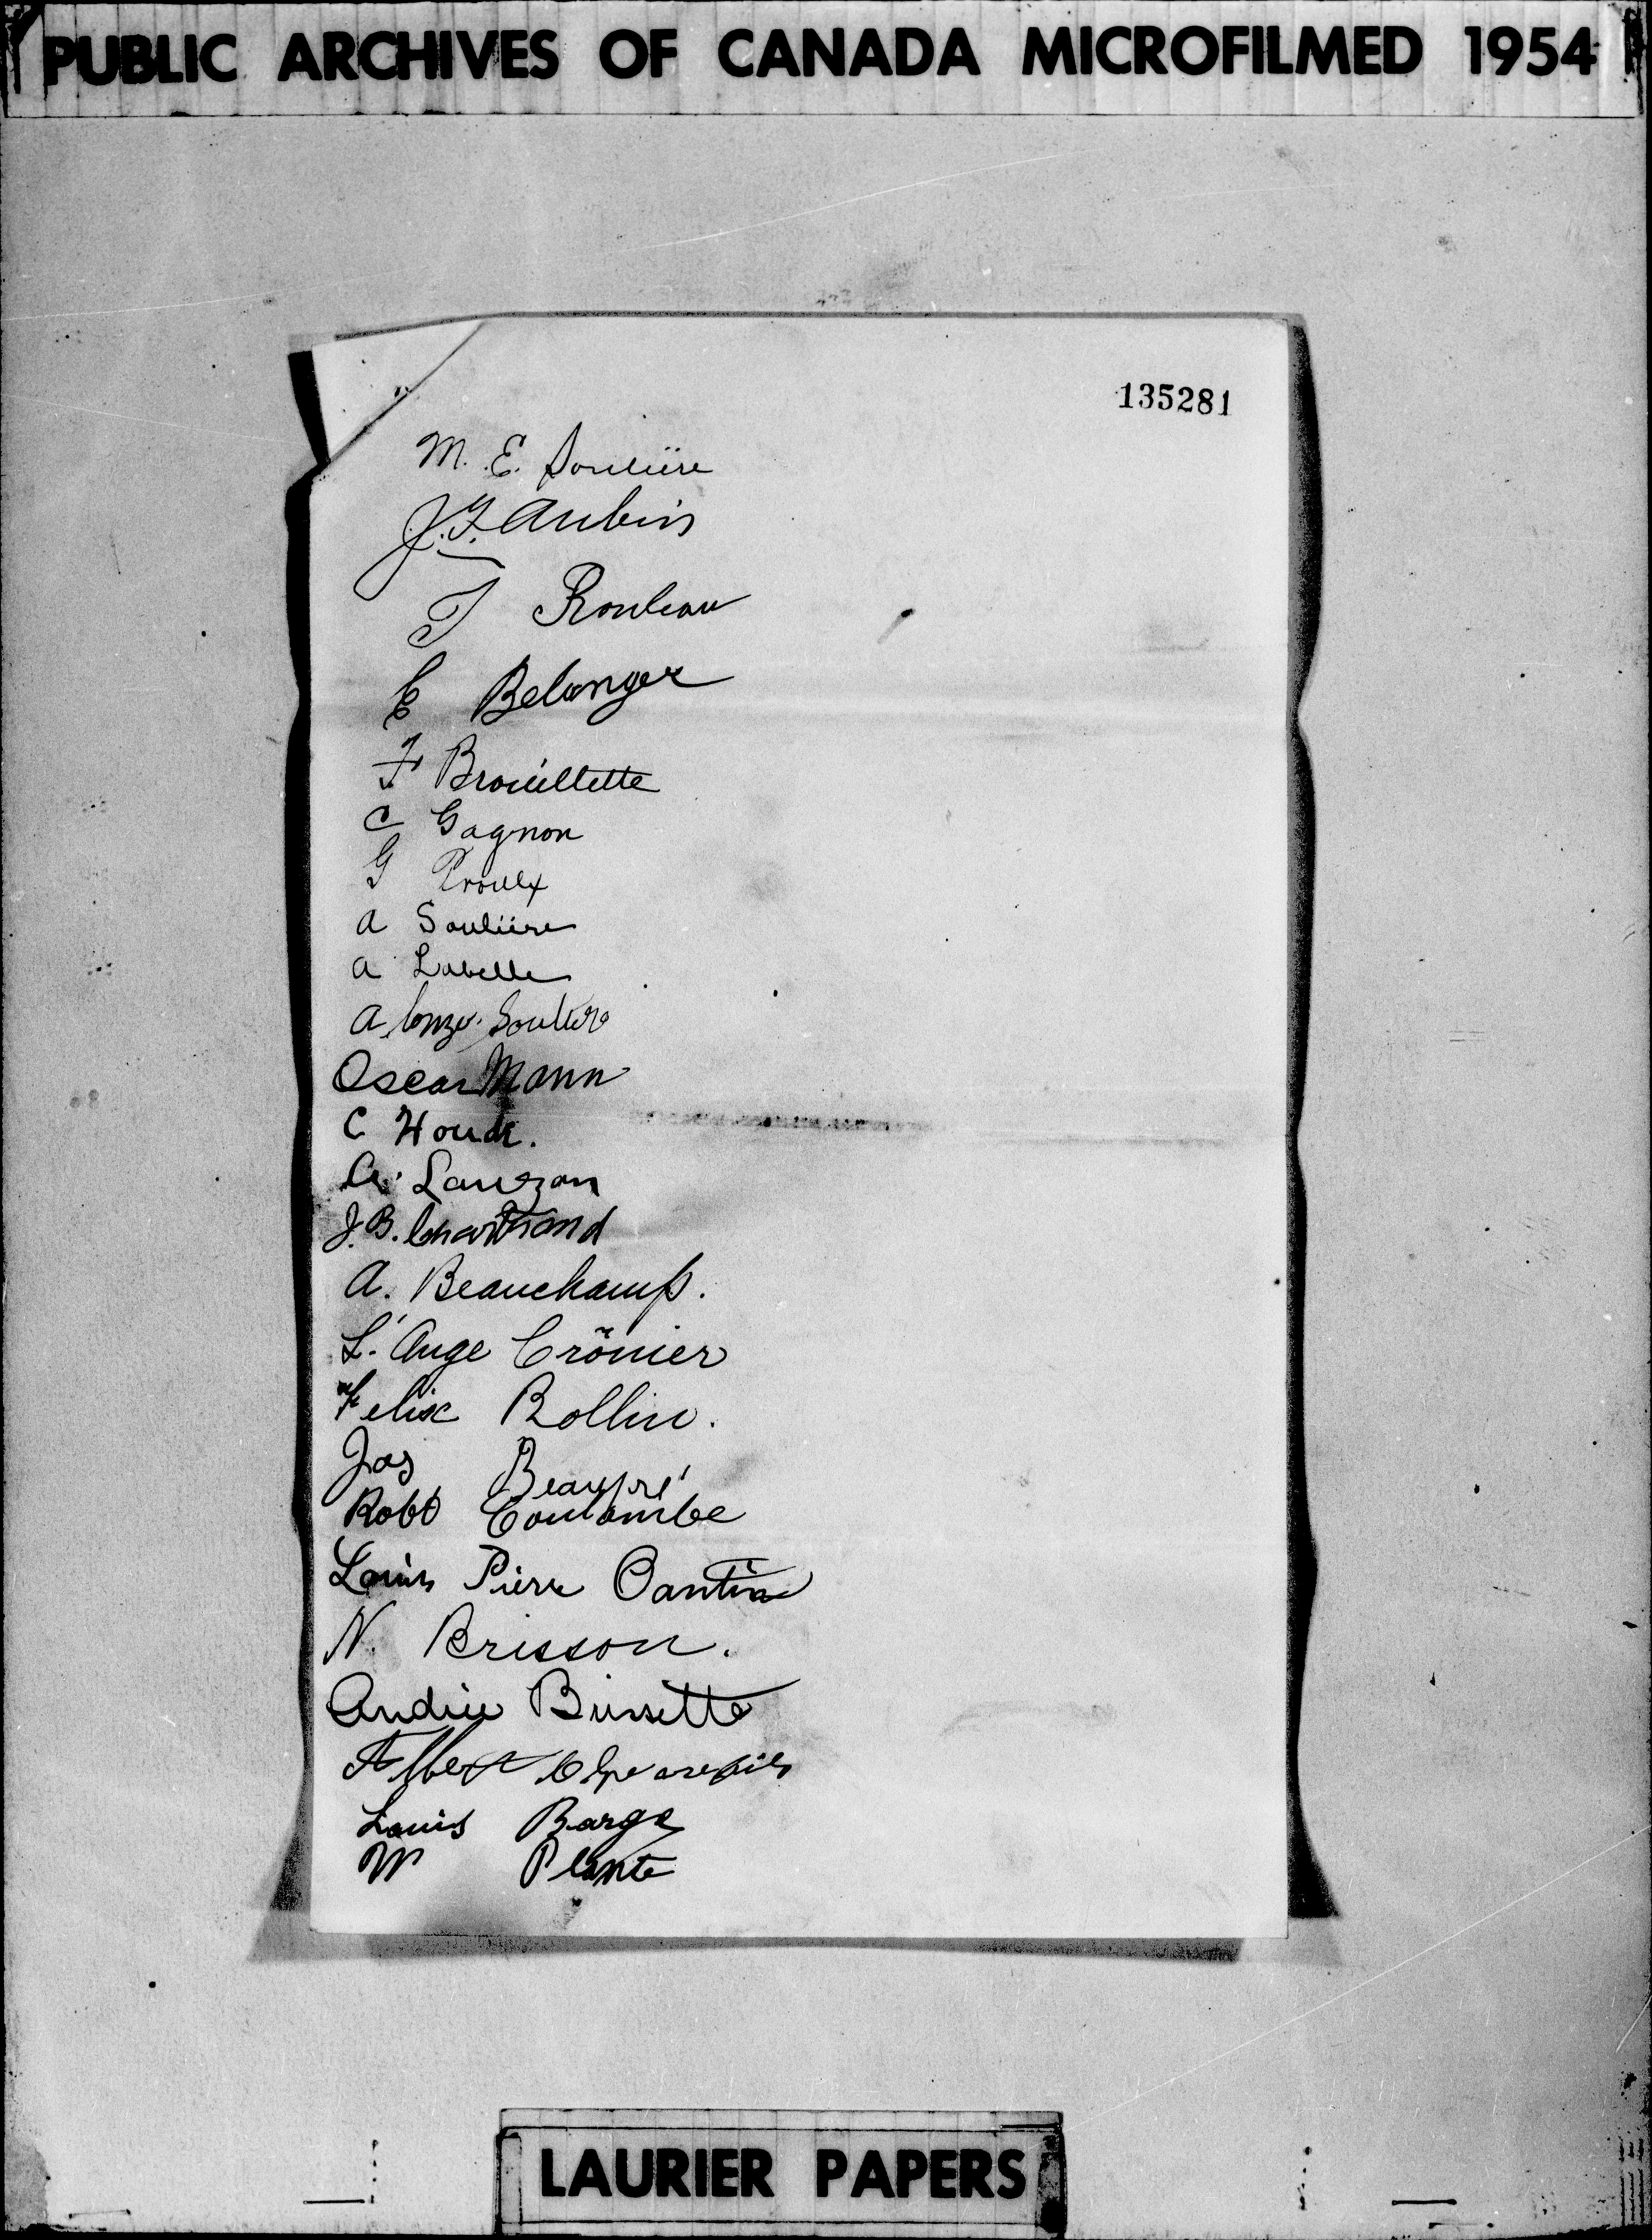 PUBLIC ARCHIVES OF CANADA MICROFILMED 1954
135281
M. E. Soulière
J. F. Aubin
T Rouleau
E Belanger
F Brouillette
C Gagnon
G Proulx
A Soulière
A Labelle
Alonzo Souliere
Oscar Mann
C Houde.
A. Lauzon
J. B. Chartrand
A. Beauchamp.
L'Ange Crônier
Felix Rollin.
Jos Beaupré
Robt Coulombe
Louis Pierre Cantin
N. Brisson.
Andrée Brissette
Albert
Louis Barge
M Plante
LAURIER PAPERS